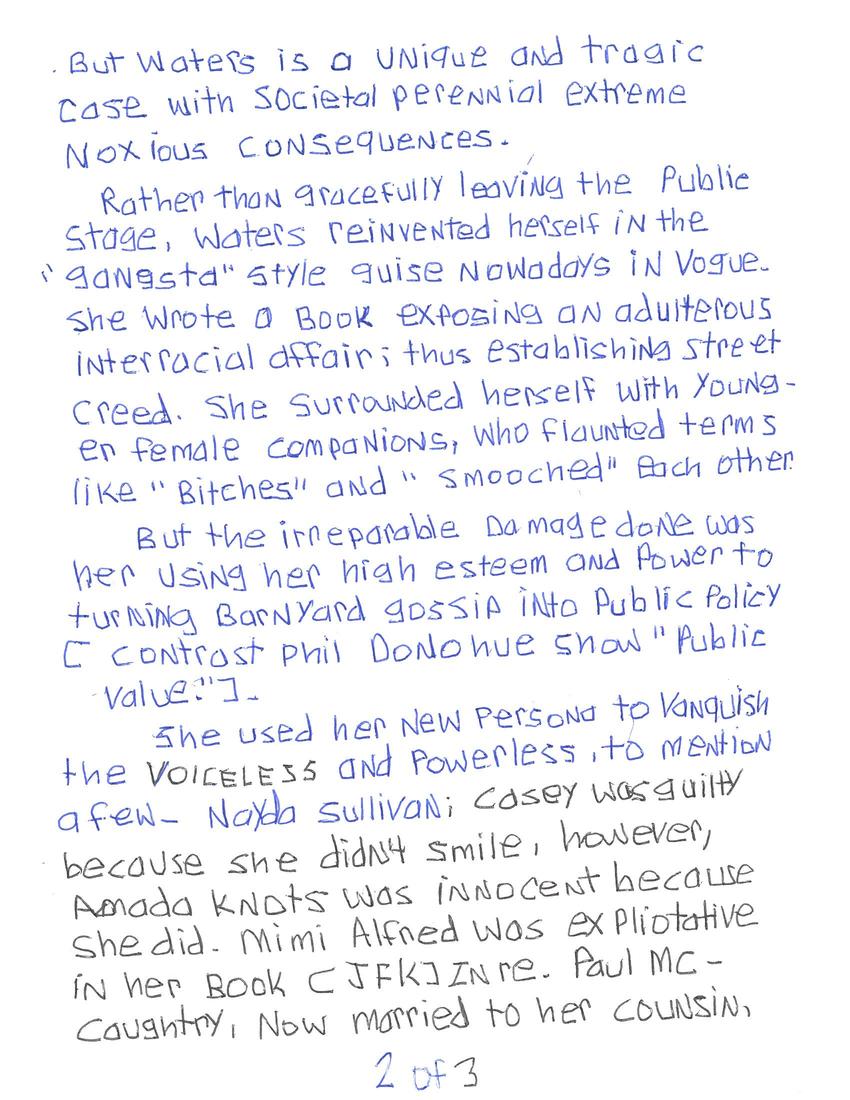 . But Waters is a UNique and tragic
case with societal perennial extreme
Noxious consequences.
Rather than gracefully leaving the Public
Stage, Waters reinvented herself in the
"gangsta" style guise Nowadays in Vogue.
She wrote a Book exposing an adulterous
interracial affair; thus establishing street
creed. She surrounded herself with Young-
er female companions, who flaunted terms
like "Bitches" and "smooched" Each other.
But the irreparable Damage done was
her using her high esteem and Power to
turning BarnYard gossip into Public Policy
[ contrast Phil Donohue show "Public
Value."].
She used her New Persona to Vanquish
the VOICELESS and Powerless, to mention
a few- Nayda Sullivan; Casey was guilty
because she didn't smile, however,
Amada Knots was innocent because
she did. Mimi Alfred was expliotative
in her Book [JFK] IN re. Paul MC-
Caughtry, Now married to her counsin,
2 of 3